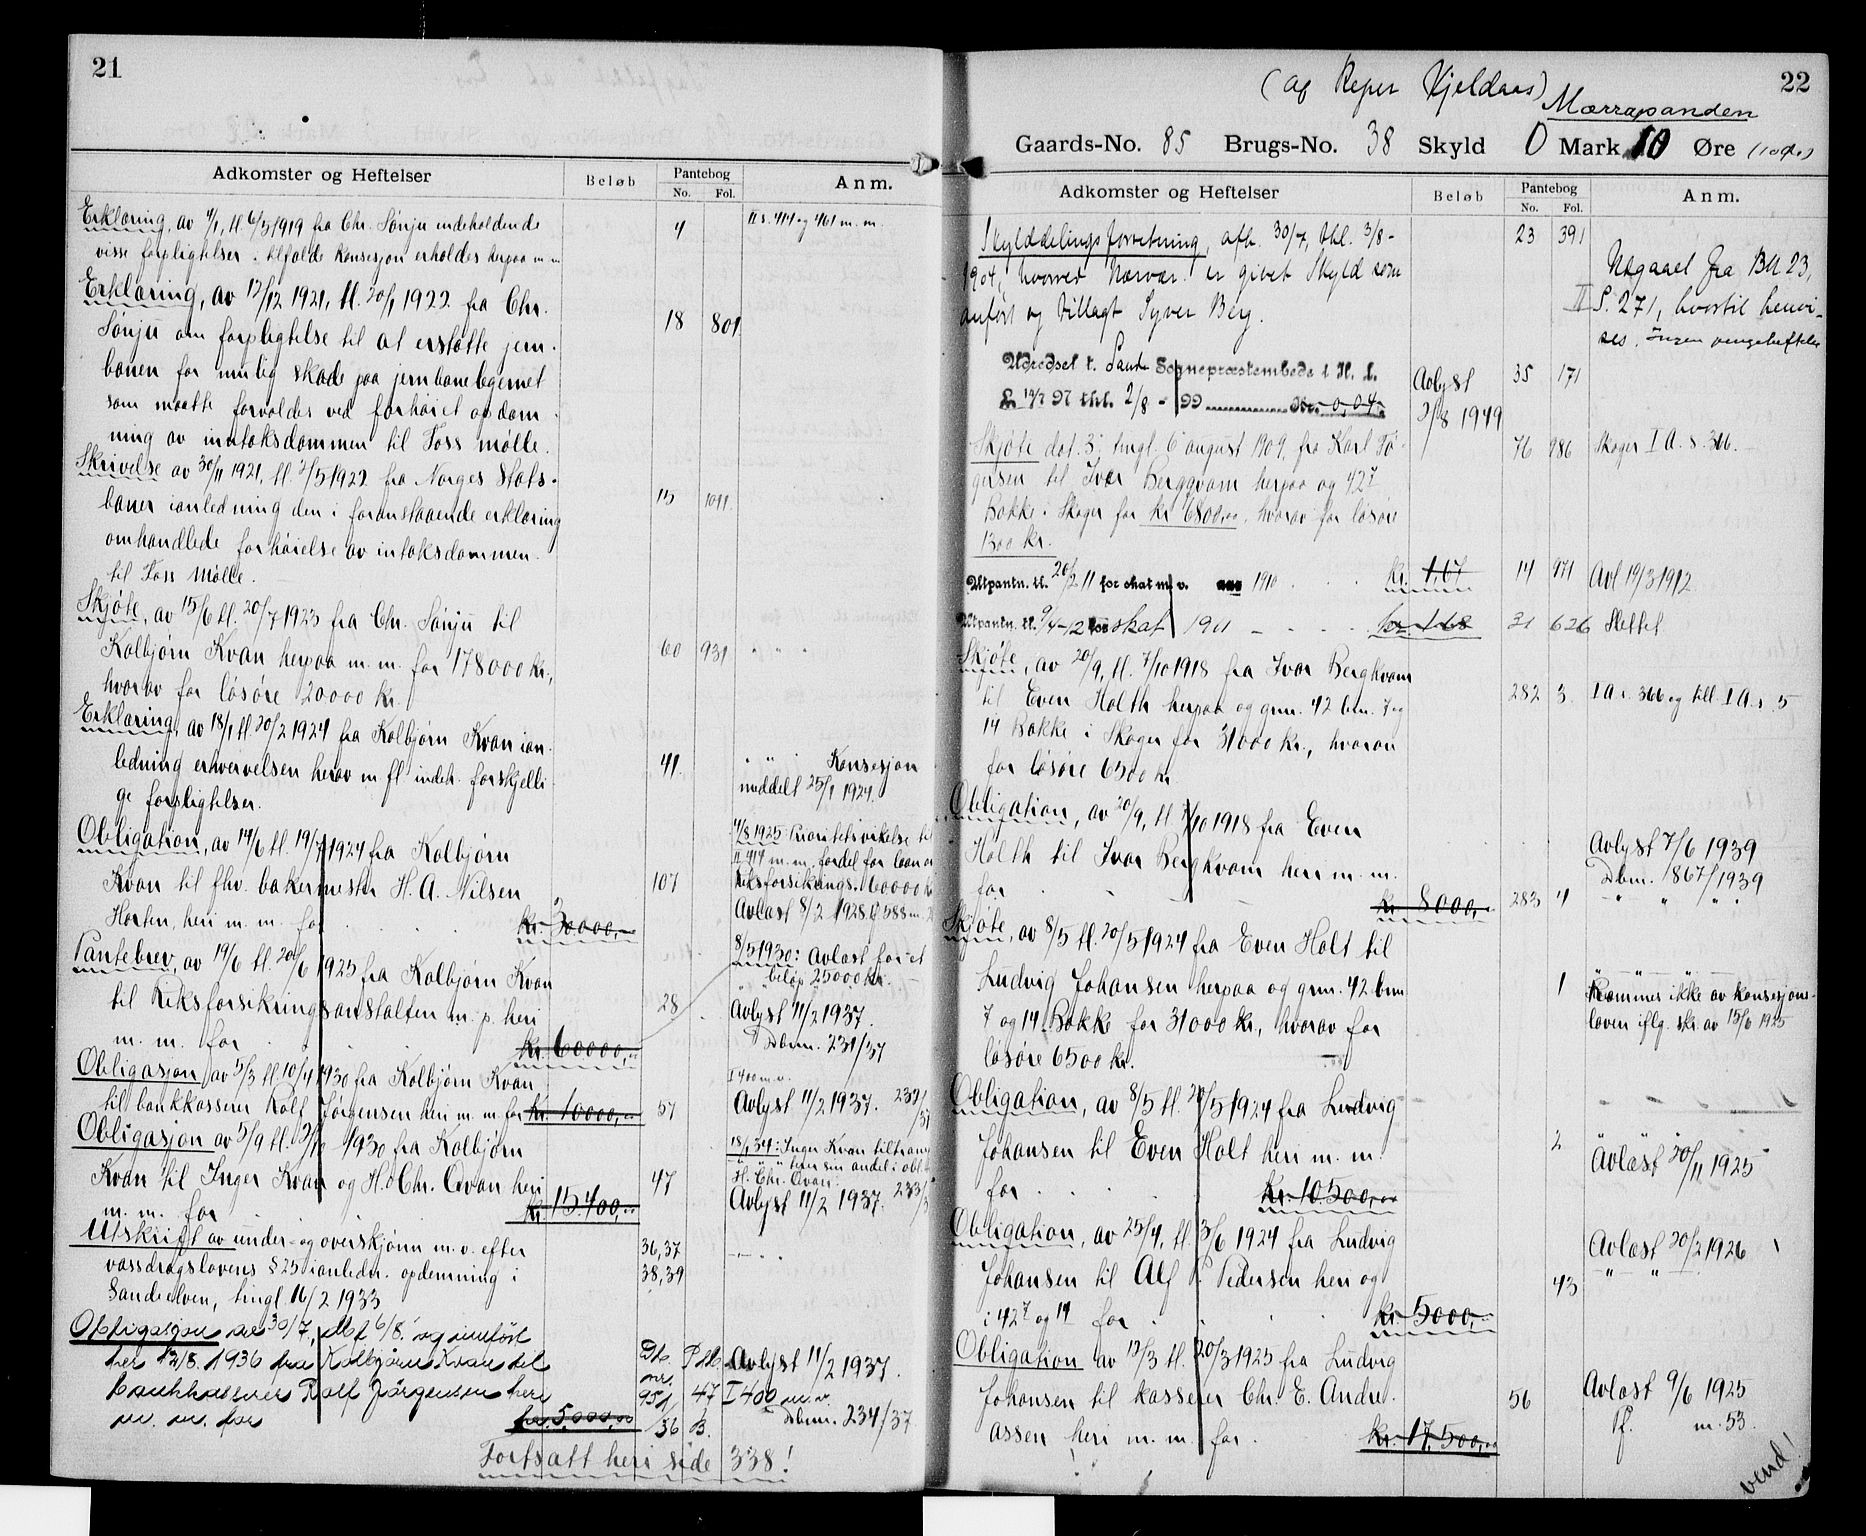 21
Adkomster og Heftelser Beløb Pantebog No. Fol. Anm.
Erklæring, av 4/1, tl. 6/5 1919 fra Chr. Sønju indeholdende 4 II s. 414 og 461 m. m.
visse forpligtelser i tilfælde konsesjon erholdes herpaa m m
Erklæring, av 12/12 1921, tl. 20/1 1922 fra Chr. 18 801
Sønju om forpligtelse til at erstatte jern-
banen for mulig skade paa jernbanelegemet
som maatte forvoldes ved forhøiet opdem-
ning av inntaksdammen til Foss mølle.
Skrivelse av 30/11 1921, tl. 2/5 1922 fra Norges Stats- 115 1041
baner ianledning den i foranstaaende erklæring
omhandlede forhøielse av intaksdammen
til Foss Mølle.
Skjøte, av 15/6 tl. 20/7 1923 fra Chr. Sønju til
Kolbjørn Kvan herpaa m. m. for 178000 kr., 60 931 " " "
hvorav for løsøre 20000 kr.
Erklæring, av 18/1 tl. 20/2 1924 fra Kolbjørn Kvan ian-
ledning erhvervelsen herav m fl indeh. forskjelli- 41 " " " Konsesjon
ge forpligtelser. meddelt 25/1 1924.
Obligation, av 14/6 tl. 19/7 1924 fra Kolbjørn 4/8 1925 Prioritetsvikelse til
Kvan til fhv. bakermester H. A. Nilsen 107 II 414 m. m. fordel for laan av
Horten, heri m. m. for kr. 30000,- Riksforsikrings. 60000 kr
Avlæst 8/2 1928
Pantebrev, av 19/6 tl. 20/6 1925 fra Kolbjørn Kvan 8/5 1930: Avlæst for et
beløp 25000 kr.
til Riksforsikringsanstalten m. p. heri 28 Avlyst 11/2 1937.
m. m. for kr. 60000,- Dbnr. 231/37
Obligasjon av 5/3 tl 10/4 1930 fra Kolbjørn Kvan I 400 m.v.
til bankkasserer Rolf Jørgensen heri m. m. for kr. 10000,- 57 Avlyst 11/2 1937. 232/37
Obligasjon av 5/9 tl. 3/10 1930 fra Kolbjørn 18/1 34: Inger Kvan tiltransp
Kvan til Inger Kvan og H. Chr. Qvan heri 47 terer sin andel i obl. til
H. Chr. Qvan.
m. m. for kr. 15.400,- Avlyst 11/2 1937. 233/3
Utskrift av under- og overskjønn m. v. efter 36,37
vassdragslovens § 25 ianledn. opdemning i 38,39
Sandeelven, tingl. 16/2 1933
Obligasjon av 30/7, dbf 6/8. og innført
her 12/8. 1936 fra Kolbjørn Kvan til Db. Avlyst 11/2 1937.
bankkasserer Rolf Jørgensen heri nr. 951 47 I 400 m. v.
m. m. for kr. 5.000,00 /36 B. Dbnr. 234/37
Fortsatt heri side 338!
22
(af Reper Kjeldaas) Mærrapanden
Gaards-No. 85 Brugs-No. 38 Skyld 0 Mark 10 Øre (10 øre)
Adkomster og Heftelser Beløb Pantebog No. Fol. Anm.
Skylddelingsforretning, afh. 30/7, thl. 3/8- 23 391
1904, hvorved nærvær. er givet Skyld som Udgaaet fra BN 23,
anført og tillagt Syver Berg. II S. 271, hvortil henvi-
ses. Ingen pengeheftelser
Udredsel t. Sande Sognepræstembede i H. t. Avlyst 35 171
kr 14/7 97 thl. 2/8 - 99 Kr. 0,04 2/8 1949
Skjøte dat. 3, tingl. 6 august 1909, fra Karl Tø- 76 986 Skoger I A. s. 366.
gersen til Ivar Bergqvam herpaa og 42 7
Bakke i Skoger for kr 6800,00, hvorav for løsøre
1300 kr.
Utpantn. tl. 20/2 11 for skat m. v. 1910 kr. 1,67 14 971 Avl 19/3 1912
Utpantn. tl. 9/4-12 for skat 1911 kr. 1.68 31 626 Slettet
Skjøte, av 20/9, tl. 7/10 1918 fra Ivar Bergkvam
til Even Holth herpaa og grn. 42 bn. 7 og 282 3. I A s. 366 og till. I A. s. 5
14 Bakke i Skoger for 31000 kr., hvorav
for løsøre 6500 kr.
Obligation, av 20/9, tl. 7/10 1918 fra Even
Holth til Ivar Bergkvam heri m. m. Avlyst 7/6 1939
for kr 8000,- 283 4 Dbnr. 1867/1939
Skjøte, av 8/5 tl. 20/5 1924 fra Even Holt til
Ludvig Johansen herpaa og grn. 42 bnr 1 Rammes ikke av konsesjons-
7 og 14 Bakke for 31000 kr., hvorav for loven iflg. skr. av 15/6 1925
løsøre 6500 kr.
Obligation, av 8/5 tl. 20/5 1924 fra Ludvig
Johansen til Even Holt heri m. m. 2 Avlæst 20/11 1925
for kr. 10500,-
Obligation, av 25/4, tl. 3/6 1924 fra Ludvig Avlæst 20/2 1926
Johansen til Alf P. Pedersen heri og 43 " "
i 42 7 og 14 for kr. 5000,-
Obligation av 13/3 tl. 20/3 1925 fra Ludvig
Johansen til kasserer Chr. E. Andre- 56 Avlæst 9/6 1925
assen heri m. m. for kr. 17,500,00 Pf. m. 53.
vend!